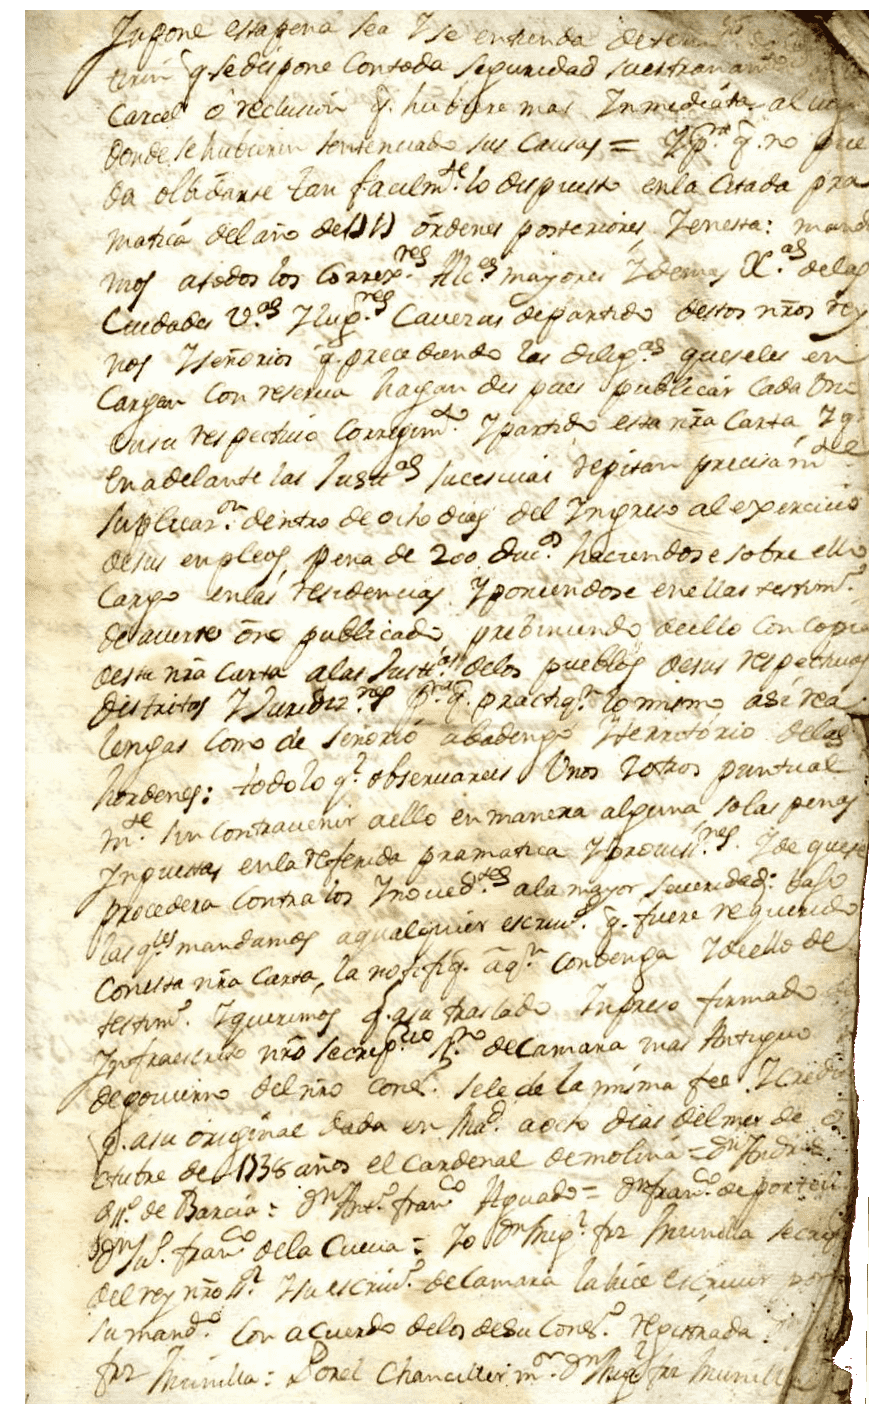 Inpone esta pena sea Y se entienda deten
q̃ se dispone Con toda Seguridad su estrañam
Carcel ó reclusion q̃. hubiere mas Inmediata al
donde se hubieren sentenciado sus Causas = Y pᵃ. q̃. no pue
da olbidarse tan facilmᵗᵉ. lo dispuesto en la Citada pra
matica del año de órdenes posteriores, Y en esta: manda
mos a todos los Correxᵒʳᵉˢ. Alcᵉˢ mayores Y demas de las
Ciudades V.ᵃˢ Y lugᵃʳᵉˢ Caveras de partido destos nr̃os rey
nos Y señorios q̃. precediendo las dilig.ᵃˢ que se les en
Cargan Con reserua hagan despues publicár Cada Uno
en su respectiuo Corregimᵗᵒ. Y partido esta nr̃a Carta Y q̃
en adelante las Justᵃˢ sucesiuas repitan precisamᵗᵉ
su plicazᵒⁿ. dentro de ocho dias del Ingreso al exercicio
de sus enpleos, pena de 200 ducᵒˢ. haciendose sobre ello
Cargo en las residencias Y poniendose en ellas testimᵒ.
de auerse ono publicado, prebiniendo de ello Con copia
desta nr̃a Carta a las Justiᵃˢ de los pueblos de sus respectiuos
distritos Y Juridizᵒⁿᵉˢ pᵃʳᵃ q̃. practiqⁿ lo mismo así rea
lengas Como de señorió abadengo Y território de las
hordenes: todo lo q̃. obseruareis Unos Y otros puntual
mᵗᵉ sin contrauenir a ello en manera alguna so las penas
Inpuestas en la referida pramatica Y prouisiᵒⁿᵉˢ. Y de que se
procedera Contra los Ynouedᵗᵉˢ a la mayor Seueridad: bajo
las qᵉˢ mandamos a qualquier escriuᵒ. q̃. fuere requerido
Con esta nr̃a Carta, la notifiq. a qⁿ Conbenga Y de ello de
testimᵒ. Y queremos q̃. a su traslado Inpreso firmado
Infraescrito nr̃o Secretᵃʳⁱᵒ de Camara mas Antiguo
de gouierno del nr̃o Consᵒ. se le de la misma fee Y credi
q̃. a su original dada en Madᵈ. a ocho dias del mes de o
ctubre de 1738 años el Cardenal de molina = Dⁿ Andr
de Barcia: Dⁿ Antᵒ. Francᵒ Aguado = Dⁿ franᶜᵒ. de porte
Dⁿ Juᵒ. franᶜᵒ de la Cueua: Yo Dⁿ Migᵉˡ frz Munilla Secre
del rey nr̃o Sʳ Y su escriuᵒ. de Camara la hice escriuir por
su mandᵒ. Con acuerdo de los de su Consᵒ. registrada:
frz Munilla: Por el Chanciller mᵒʳ. Dⁿ Migᵉˡ frz Munilla